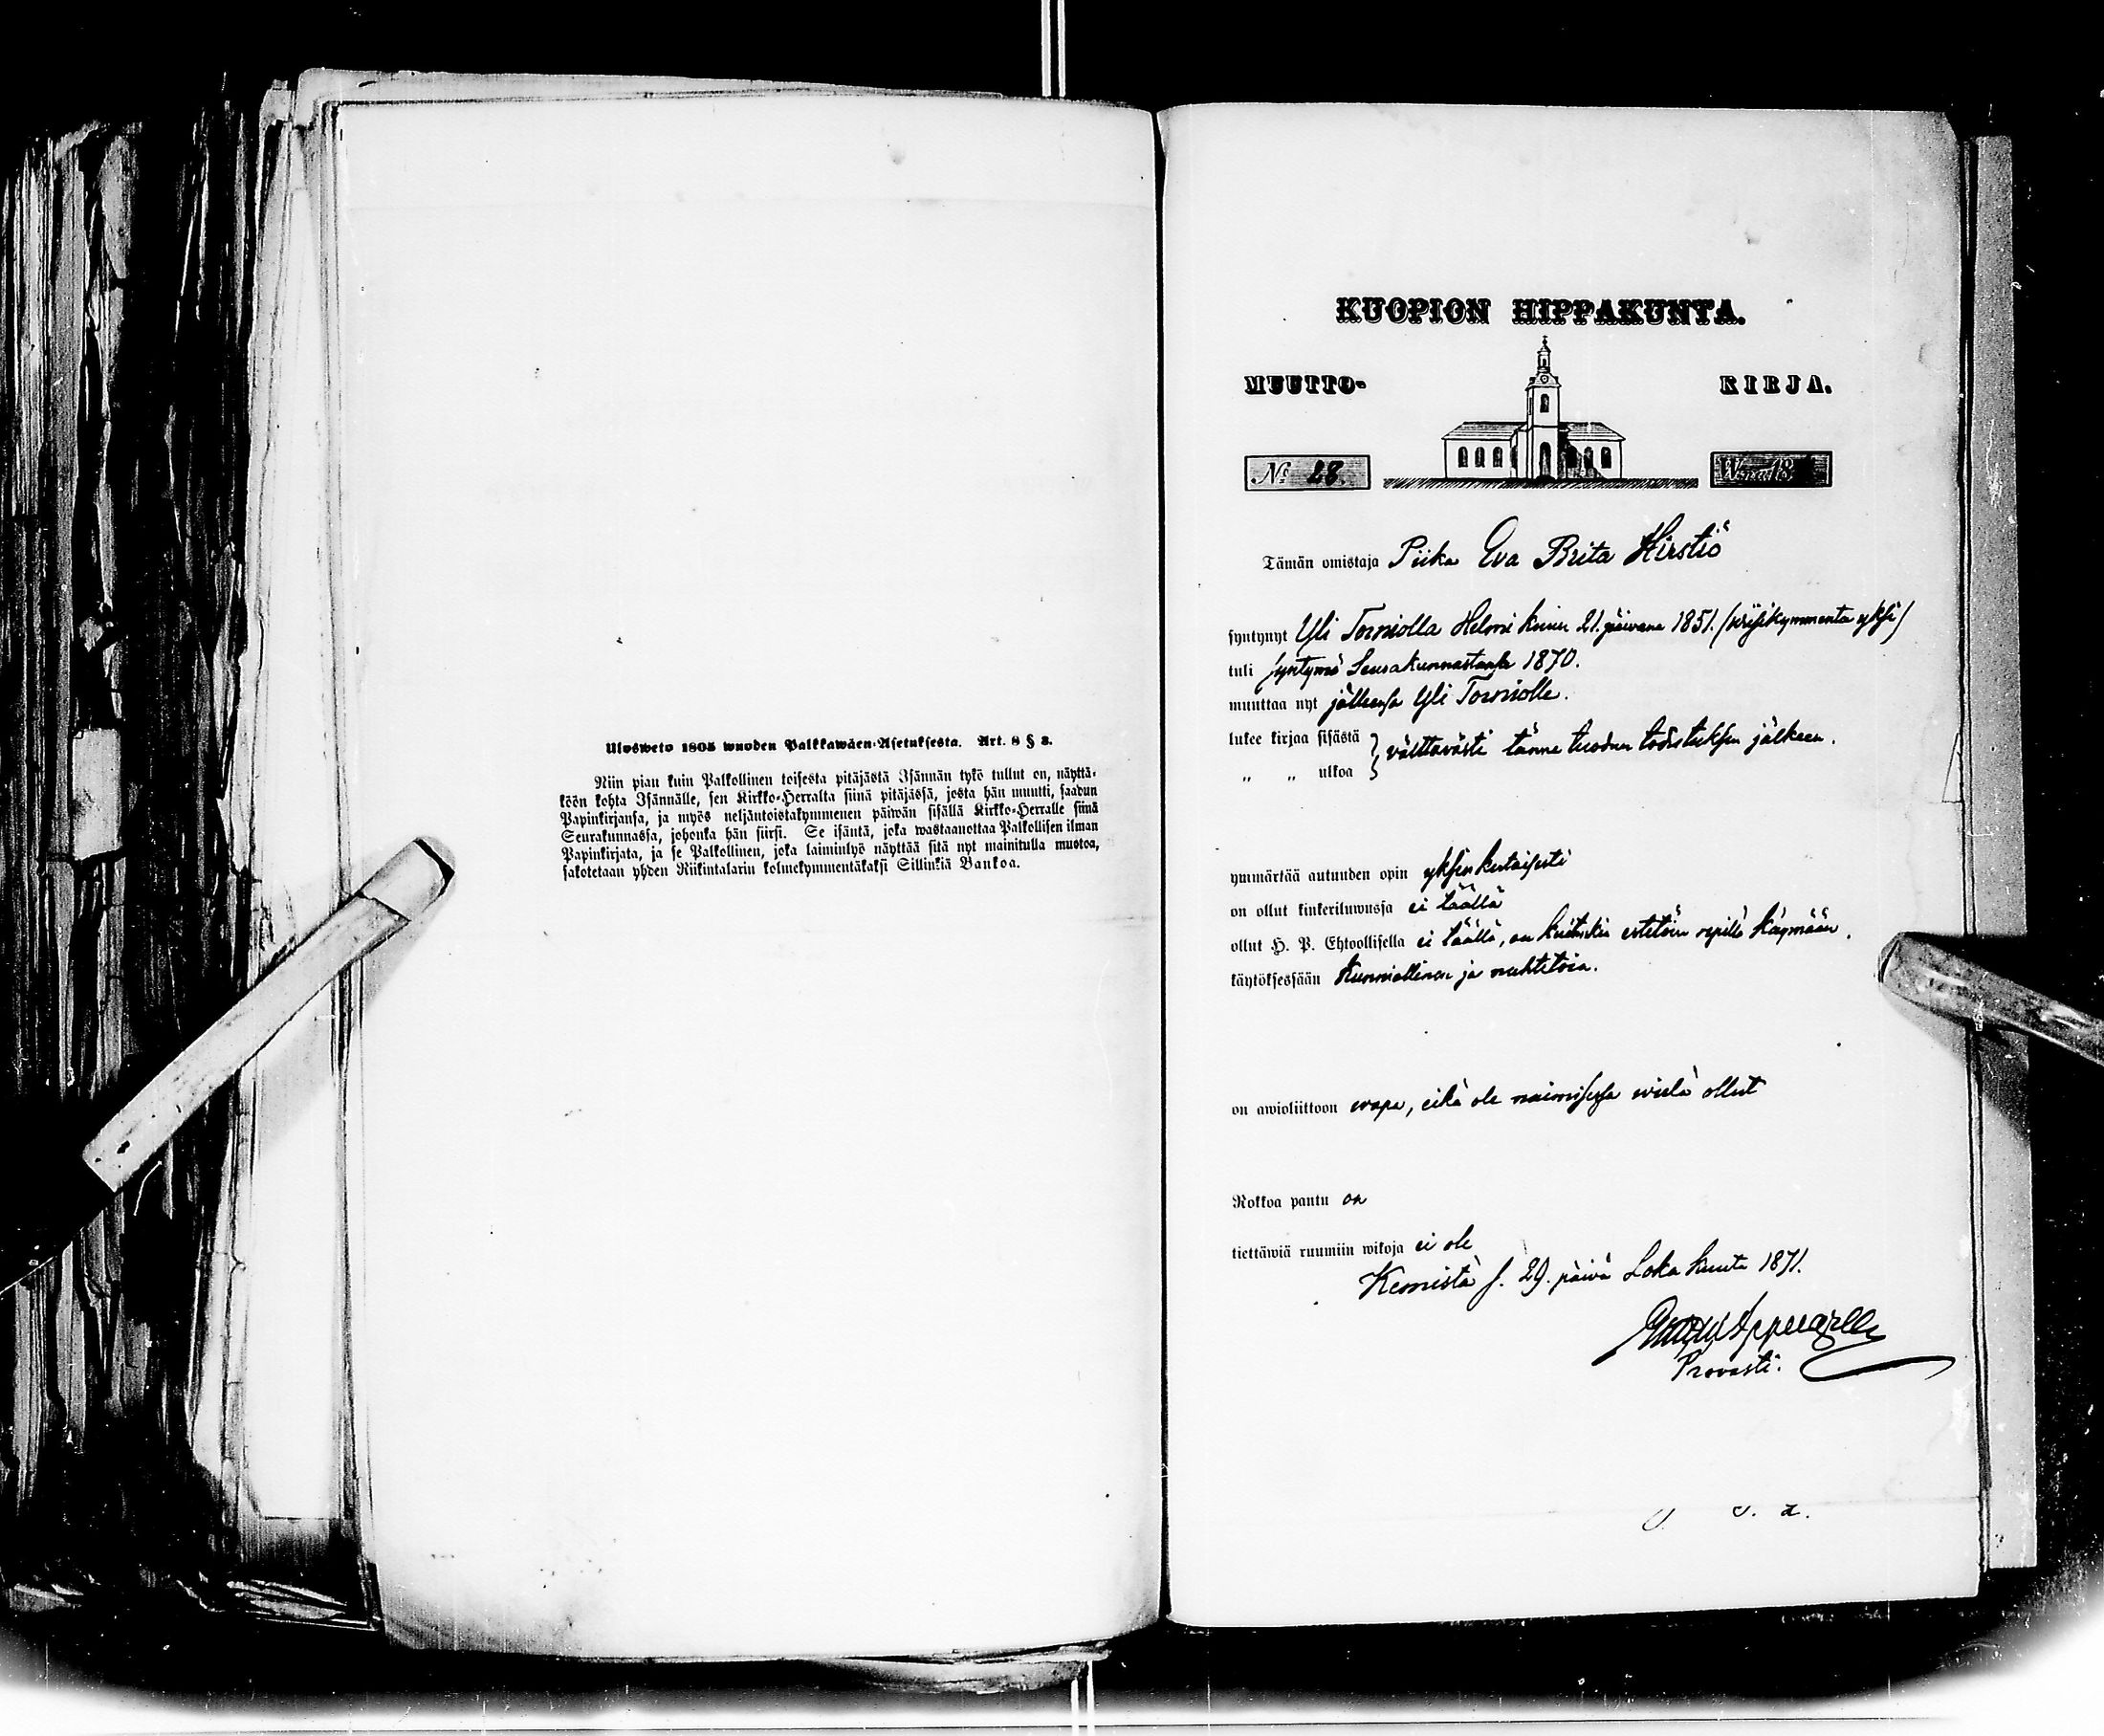 Ulosweto 1805 wuoden Palkkawäen-Asetuksesta. Art. 8 § 3.
Niin pian kuin Palkollinen toisesta pitäjästä Isännän tykö tullut on, näyttä-
köön kohta Isännälle, sen Kirkko-Herralta siinä pitäjässä, josta hän muutti, saadun
Papinkirjansa, ja myös neljäntoistakymmenen päiwän sisällä Kirkko-Herralle siinä
Seurakunnassa, johonka hän siirsi. Se isäntä, joka wastaanottaa Palkollisen ilman
Papinkirjata, ja se Palkollinen, joka laiminlyö näyttää sitä nyt mainitulla muotoa,
sakotetaan yhden Riikintalarin kolmekymmentäkaksi Sillinkiä Bankoa.
KUOPION HIPPAKUNTA.
MUUTTO- KIRJA.
No 28. Wuonna 18
Tämän omistaja Piika Eva Brita Hirstiö
syntynyt Yli Torniolla Helmi kuun 21. päivänä 1851. (wiisikymmentä yksi)
tuli syntymä Seurakunnastansa 1870.
muuttaa nyt jälleensä Yli Torniolle.
lukee kirjaa sisästä } välttävästi tänne tuodun todistuksen jälkeen.
„ „ ulkoa
ymmärtää autuuden opin yksinkertaisesti
on ollut kinkeriluwussa ei täällä
ollut H. P. Ehtoollisella ei täällä, on kuitenkin estetöin ripille käymään.
käytöksessään kunniallinen ja nuhtetoin.
on awioliittoon wapa, eikä ole naimisessa wielä ollut
Rokkoa pantu on
tiettäwiä ruumiin wikoja ei ole
Kemistä s. 29. päivä Loka kuuta 1871.
Provasti.